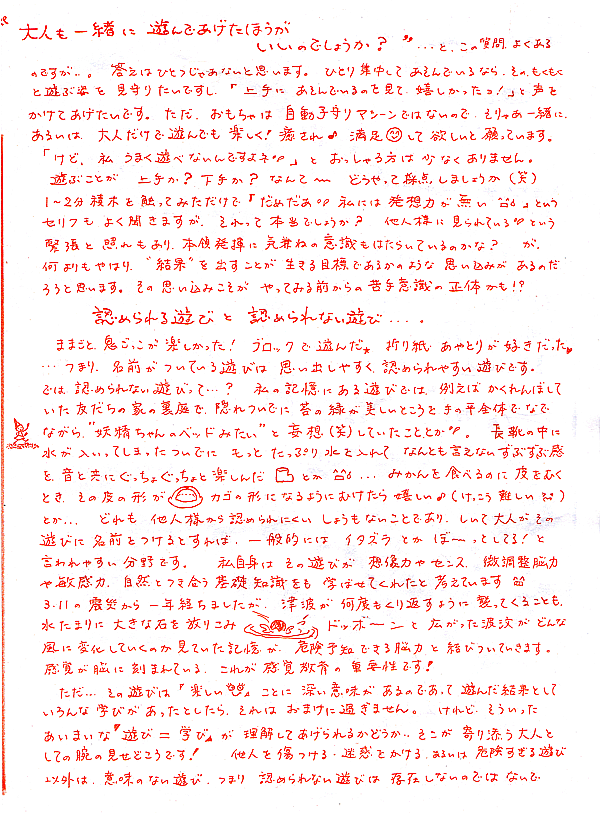 大人も一緒に 遊んであげたほうが
いいのでしょうか？ …と、この質問、よくある
のですが…。 答えはひとつじゃあないと思います。 ひとり集中してあそんでいるなら、その、もくもく
と遊ぶ姿を見守りたいですし、「上手にあそんでいるのを見て、嬉しかったっ！」と声を
かけてあげたいです。ただ、おもちゃは自動子守りマシーンではないので、そりゃあ一緒に、
あるいは、大人だけで遊んでも楽しく！癒され♪ 満足して欲しいと願っています。
「けど、私うまく遊べないんですよネ」とおっしゃる方は少なくありません。
遊ぶことが 上手か？下手か？なんて〜 どうやって採点しましょうか（笑）
1〜2分積木を触ってみただけで「だめだぁ 私には発想力が無い」という
セリフもよく聞きますが、それって本当でしょうか？ 他人様に見られているという
緊張と照れもあり、本領発揮に気兼ねの意識もはたらいているのかな？ が、
何よりもやはり、"結果"を出すことが生きる目標であるかのような思い込みがあるのだ
ろうと思います。その思い込みこそが やってみる前からの苦手意識の正体かも！？
認められる遊びと 認められない遊び・・・。
ままごと、鬼ごっこが楽しかった！ブロックで遊んだ★ 折り紙、あやとりが好きだった
…つまり、名前がついている遊びは思い出しやすく、認められやすい遊びです。
では、認められない遊びって…？ 私の記憶にある遊びでは、例えばかくれんぼして
いた友だちの家の裏庭で、隠れついでに苔の緑が美しいところを手の平全体でなで
ながら、"妖精ちゃんのベッドみたい"と妄想（笑）していたこととか。 長靴の中に
水が入ってしまったついでにもっとたっぷり水を入れて、なんとも言えないずぶずぶ感
を、音と共にぐっちょぐっちょと楽しんだ とか … みかんを食べるのに皮をむく
とき、その皮の形が カゴの形になるようにむけたら嬉しい♪（けっこう難しい）
とか… どれも他人様から認められにくいしょうもないことであり、しいて大人がその
遊びに名前をつけるとすれば、一般的にはイタズラとかぼ〜っとしてる！と
言われやすい分野です。 私自身はその遊びが想像力やセンス、微調整脳力
や敏感力、自然とつき合う基礎知識をも学ばせてくれたと考えています
3・11の震災から一年経ちましたが、津波が何度もくり返すように襲ってくることも、
水たまりに大きな石を放りこみ ドッボ〜ンと広がった波紋がどんな
風に変化していくのか見ていた記憶が、危険予知できる脳力と結びついていきます。
感覚が脳に刻まれている、これが感覚教育の重要性です！
ただ… その遊びは「楽しい」ことに深い意味があるのであって遊んだ結果として
いろんな学びがあったとしたら、それはおまけに過ぎません。 けれど、そういった
あいまいな『遊び＝学び』が理解してあげられるかどうか、そこが寄り添う大人と
しての腕の見せどころです！ 他人を傷つける・迷惑をかける、あるいは危険すぎる遊び
以外は、意味のない遊び、つまり 認められない遊びは存在しないのではないで